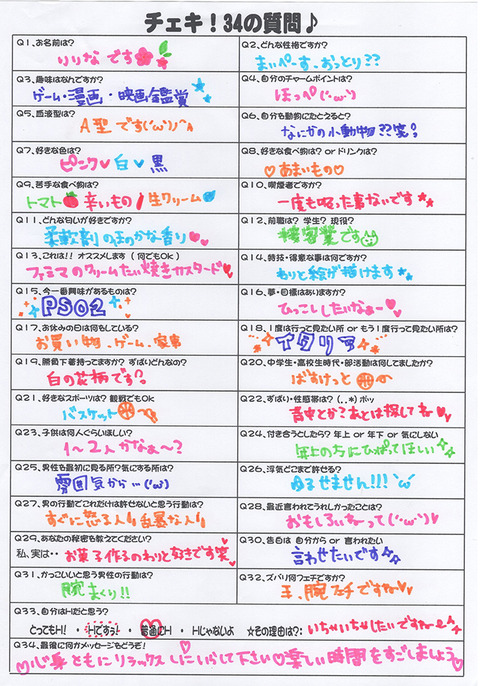 チェキ！34の質問♪
Q1、お名前は？
りりな です
Q2、どんな性格ですか？
まいぺーす、おっとり??
Q3、趣味はなんですか？
ゲーム・漫画・映画鑑賞
Q4、自分のチャームポイントは？
ほっぺ(・ω・)
Q5、血液型は？
A型 です(・ω・)ノ
Q6、自分も動物にたとえると？
なにかの小動物??笑
Q7、好きな色は？
ピンク♥白♥黒
Q8、好きな食べ物は？ or ドリンクは？
♡あまいもの♡
Q9、苦手な食べ物は？
トマト 辛いもの/生クリーム
Q10、喫煙者ですか？
一度も吸った事ないです
Q11、どんな匂いが好きですか？
柔軟剤の王のかな香り
Q12、前職は？ 学生？ 現役？
接客業です
Q13、これは!! オススメします（何でもOk）
ファミマのクリームたい焼きカスタード♥
Q14、特技・得意な事は何ですか？
もりと絵が描けます
Q15、今一番興味があるものは？
PSO2
Q16、夢・目標はありますか？
ひっこししたいなぁー♥
Q17、お休みの日は何もしている？
お買い物、ゲーム、家事
Q18、1度は行って見たい所 or もう1度行って見たい所は？
イタリア
Q19、勝負下着持ってますか？ ずばりどんなの？
白の花柄です
Q20、中学生・高校生時代・部活動は何してましたか？
ばすけっと
Q21、好きなスポーツは？ 観戦でもOk
バスケット
Q22、ずばり・性感帯は？（，，*）ポッ
背中とか？あとは探してねー♥
Q23、子供は何人ぐらいほしい？
1～2人かなぁ～？
Q24、付き合うとしたら？ 年上 or 年下 or 気にしない
年上の方にひっぱってほしい
Q25、男性も最初に見る所？気にする所は？
雰囲気から…(・ω・)
Q26、浮気どこまで許せる？
ゆるせません!!!｀ω´
Q27、男の行動でこれだけは許せないと思う行動は？
すぐに怒る人 乱暴な人
Q28、最近言われてうれしかったことは？
おもしろいねーって(・ω・)♥
Q29、あなたの秘密も教えてください？
私、実は・・ お菓子作るのわりと好きです笑
Q30、告白は 自分から or 言われたい
言わせたいです
Q31、かっこいいと思う男性の行動は？
腕まくり!!
Q32、ズバリ何フェチですか？
手、腕フェチですねー♥
Q33、自分はHだと思う？
とってもH！ ・ Hですっ♪ ・ 普通にH ・ Hじゃないよ ☆その理由は？： いちゃいちゃしたいですねー
Q34、最後に何かメッセージもどうぞ！
♡心身ともにリラックスしにいらして下さい♡楽しい時間をすごしましょう♡